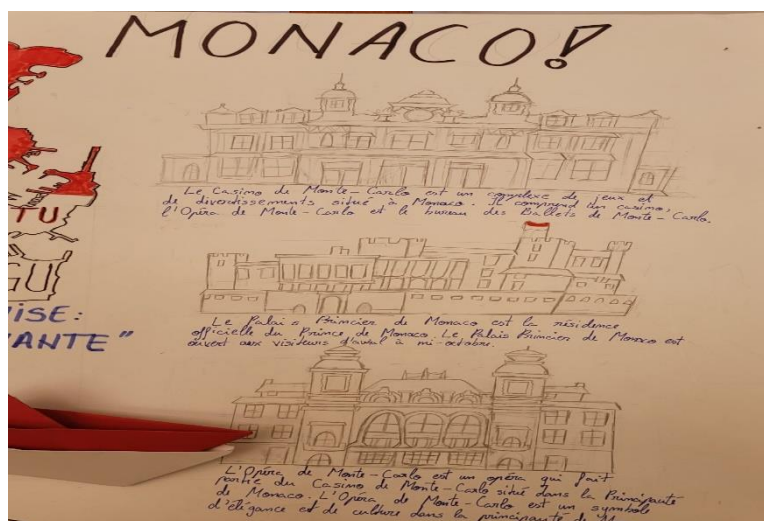 MONACO!
Le Casino de Monte-Carlo est un complexe de jeux et
de divertissements situé à Monaco. Il comprend un casino,
l'Opéra de Monte-Carlo et le bureau des Ballets de Monte-Carlo.
TU
GU
Le Palais Princier de Monaco est la résidence
officielle du Prince de Monaco. Le Palais Princier de Monaco est
ouvert aux visiteurs d'avril à mi-octobre.
ISE:
ANTE"
L'Opéra de Monte-Carlo est un opéra qui fait
partie du Casino de Monte-Carlo situé dans la Principauté
de Monaco. L'Opéra de Monte-Carlo est un symbole
d'élégance et de culture dans la principauté de